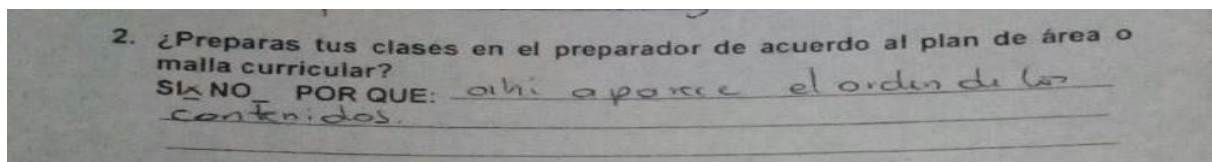 2. ¿Preparas tus clases en el preparador de acuerdo al plan de área o
malla curricular?
SI x NO _ POR QUE: ahi aparece el orden de los
contenidos.